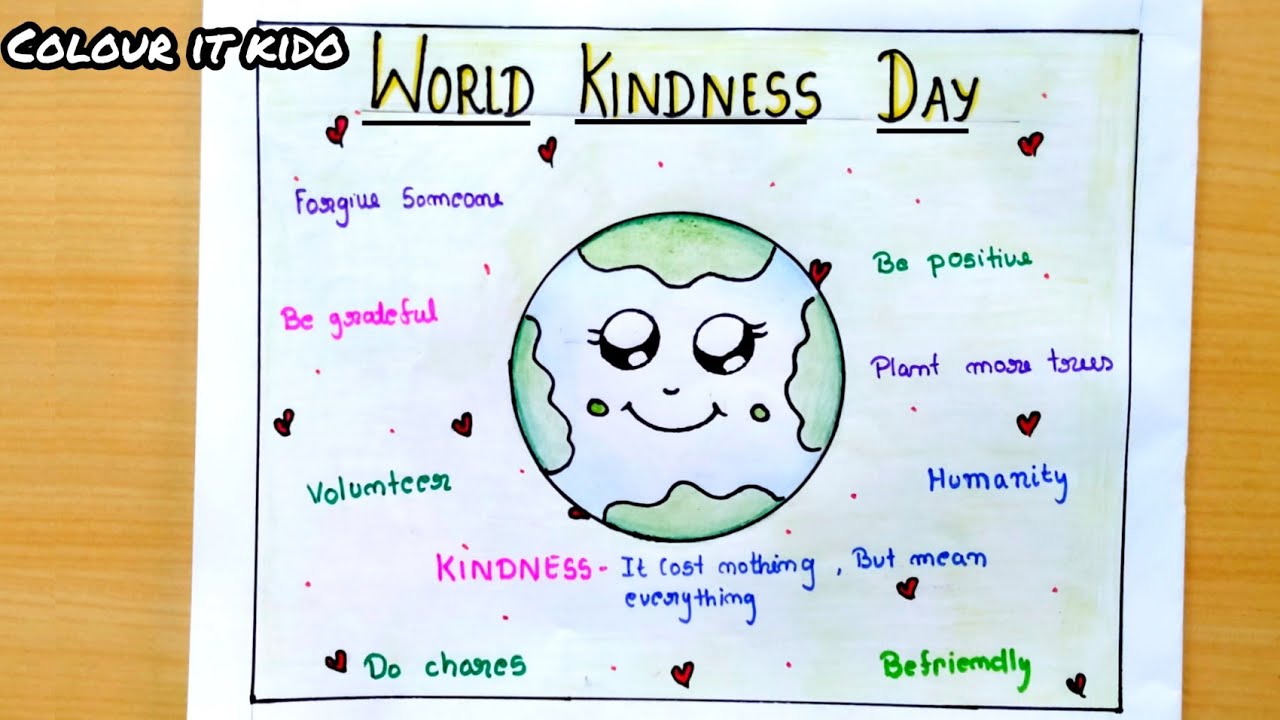 COLOUR IT KIDO
WORLD KINDNESS DAY
Forgive Someone
Be positive
Be grateful
Plant more trees
Volunteer
Humanity
KINDNESS - It cost nothing , But mean
everything
Do chores
Befriendly